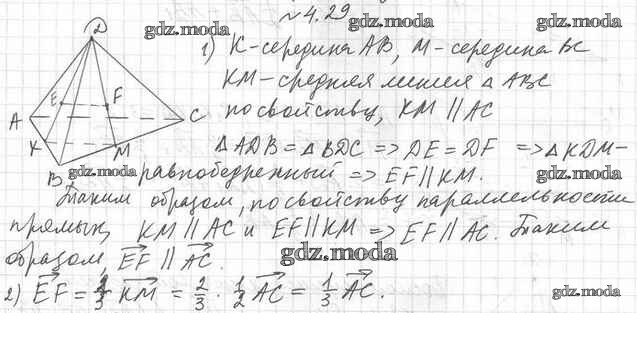 №4.29
gdz.moda gdz.moda gdz.moda
D
1) K-середина AB, M-середина BC
KM-средняя линия △ ABC
E F
по свойству, KM || AC
gdz.moda
A C
△ADB = △BDC => DE = DF => △KDM-
K M
B
gdz.moda равнобедренный => EF || KM. gdz.moda
Таким образом, по свойству параллельности
прямых, KM || AC и EF || KM => EF || AC. Таким
gdz.moda
образом, EF || AC.
2) EF = 2/3 KM = 2/3 · 1/2 AC = 1/3 AC.
gdz.moda